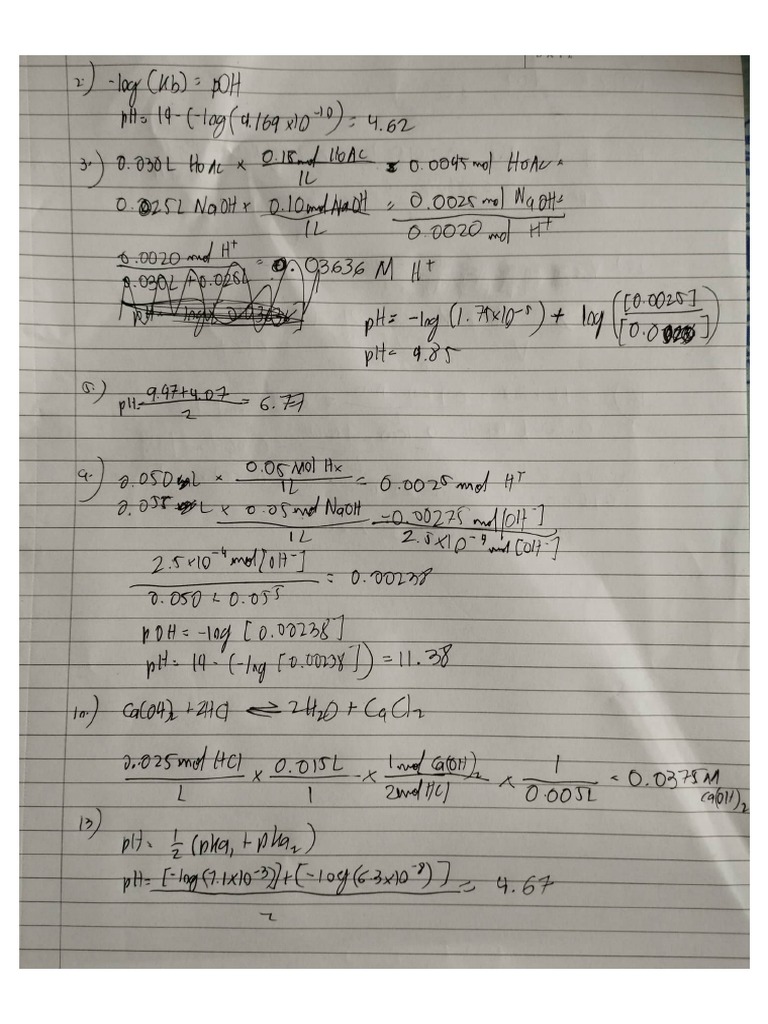 2.) -log(Kb) = pOH
pH = 14-(-log(4.169x10⁻¹⁰) = 4.62
3.) 0.030L HOAc x 0.15mol HOAc / 1L = 0.0045mol HOAc
0.025L NaOH x 0.10mol NaOH / 1L = 0.0025 mol NaOH
0.0020 mol H⁺
0.0020 mol H⁺ / 0.030L + 0.025L = 0.03636 M H⁺
pH = -log(1.75x10⁻⁵) + log([0.0025] / [0.0020])
pH = 4.85
5.) pH = 9.47+4.07 / 2 = 6.77
9.) 0.050 L x 0.05 Mol Hx / 1L = 0.0025 mol H⁺
0.055 L x 0.05 mol NaOH / 1L = 0.00275 mol [OH⁻]
2.5x10⁻⁴ mol [OH⁻]
2.5x10⁻⁴ mol [OH⁻] / 0.050 + 0.055 = 0.00238
pOH = -log [0.00238]
pH = 14 - (-log [0.00238]) = 11.38
10.) Ca(OH)₂ + 2HCl ⇌ 2H₂O + CaCl₂
0.025 mol HCl / L x 0.015L / 1 x 1 mol Ca(OH)₂ / 2 mol HCl x 1 / 0.005L = 0.0375 M Ca(OH)₂
13) pH = ½ (pka₁ + pka₂)
pH = [-log(7.1x10⁻³)] + [-log(6.3x10⁻⁸)] / 2 = 4.67